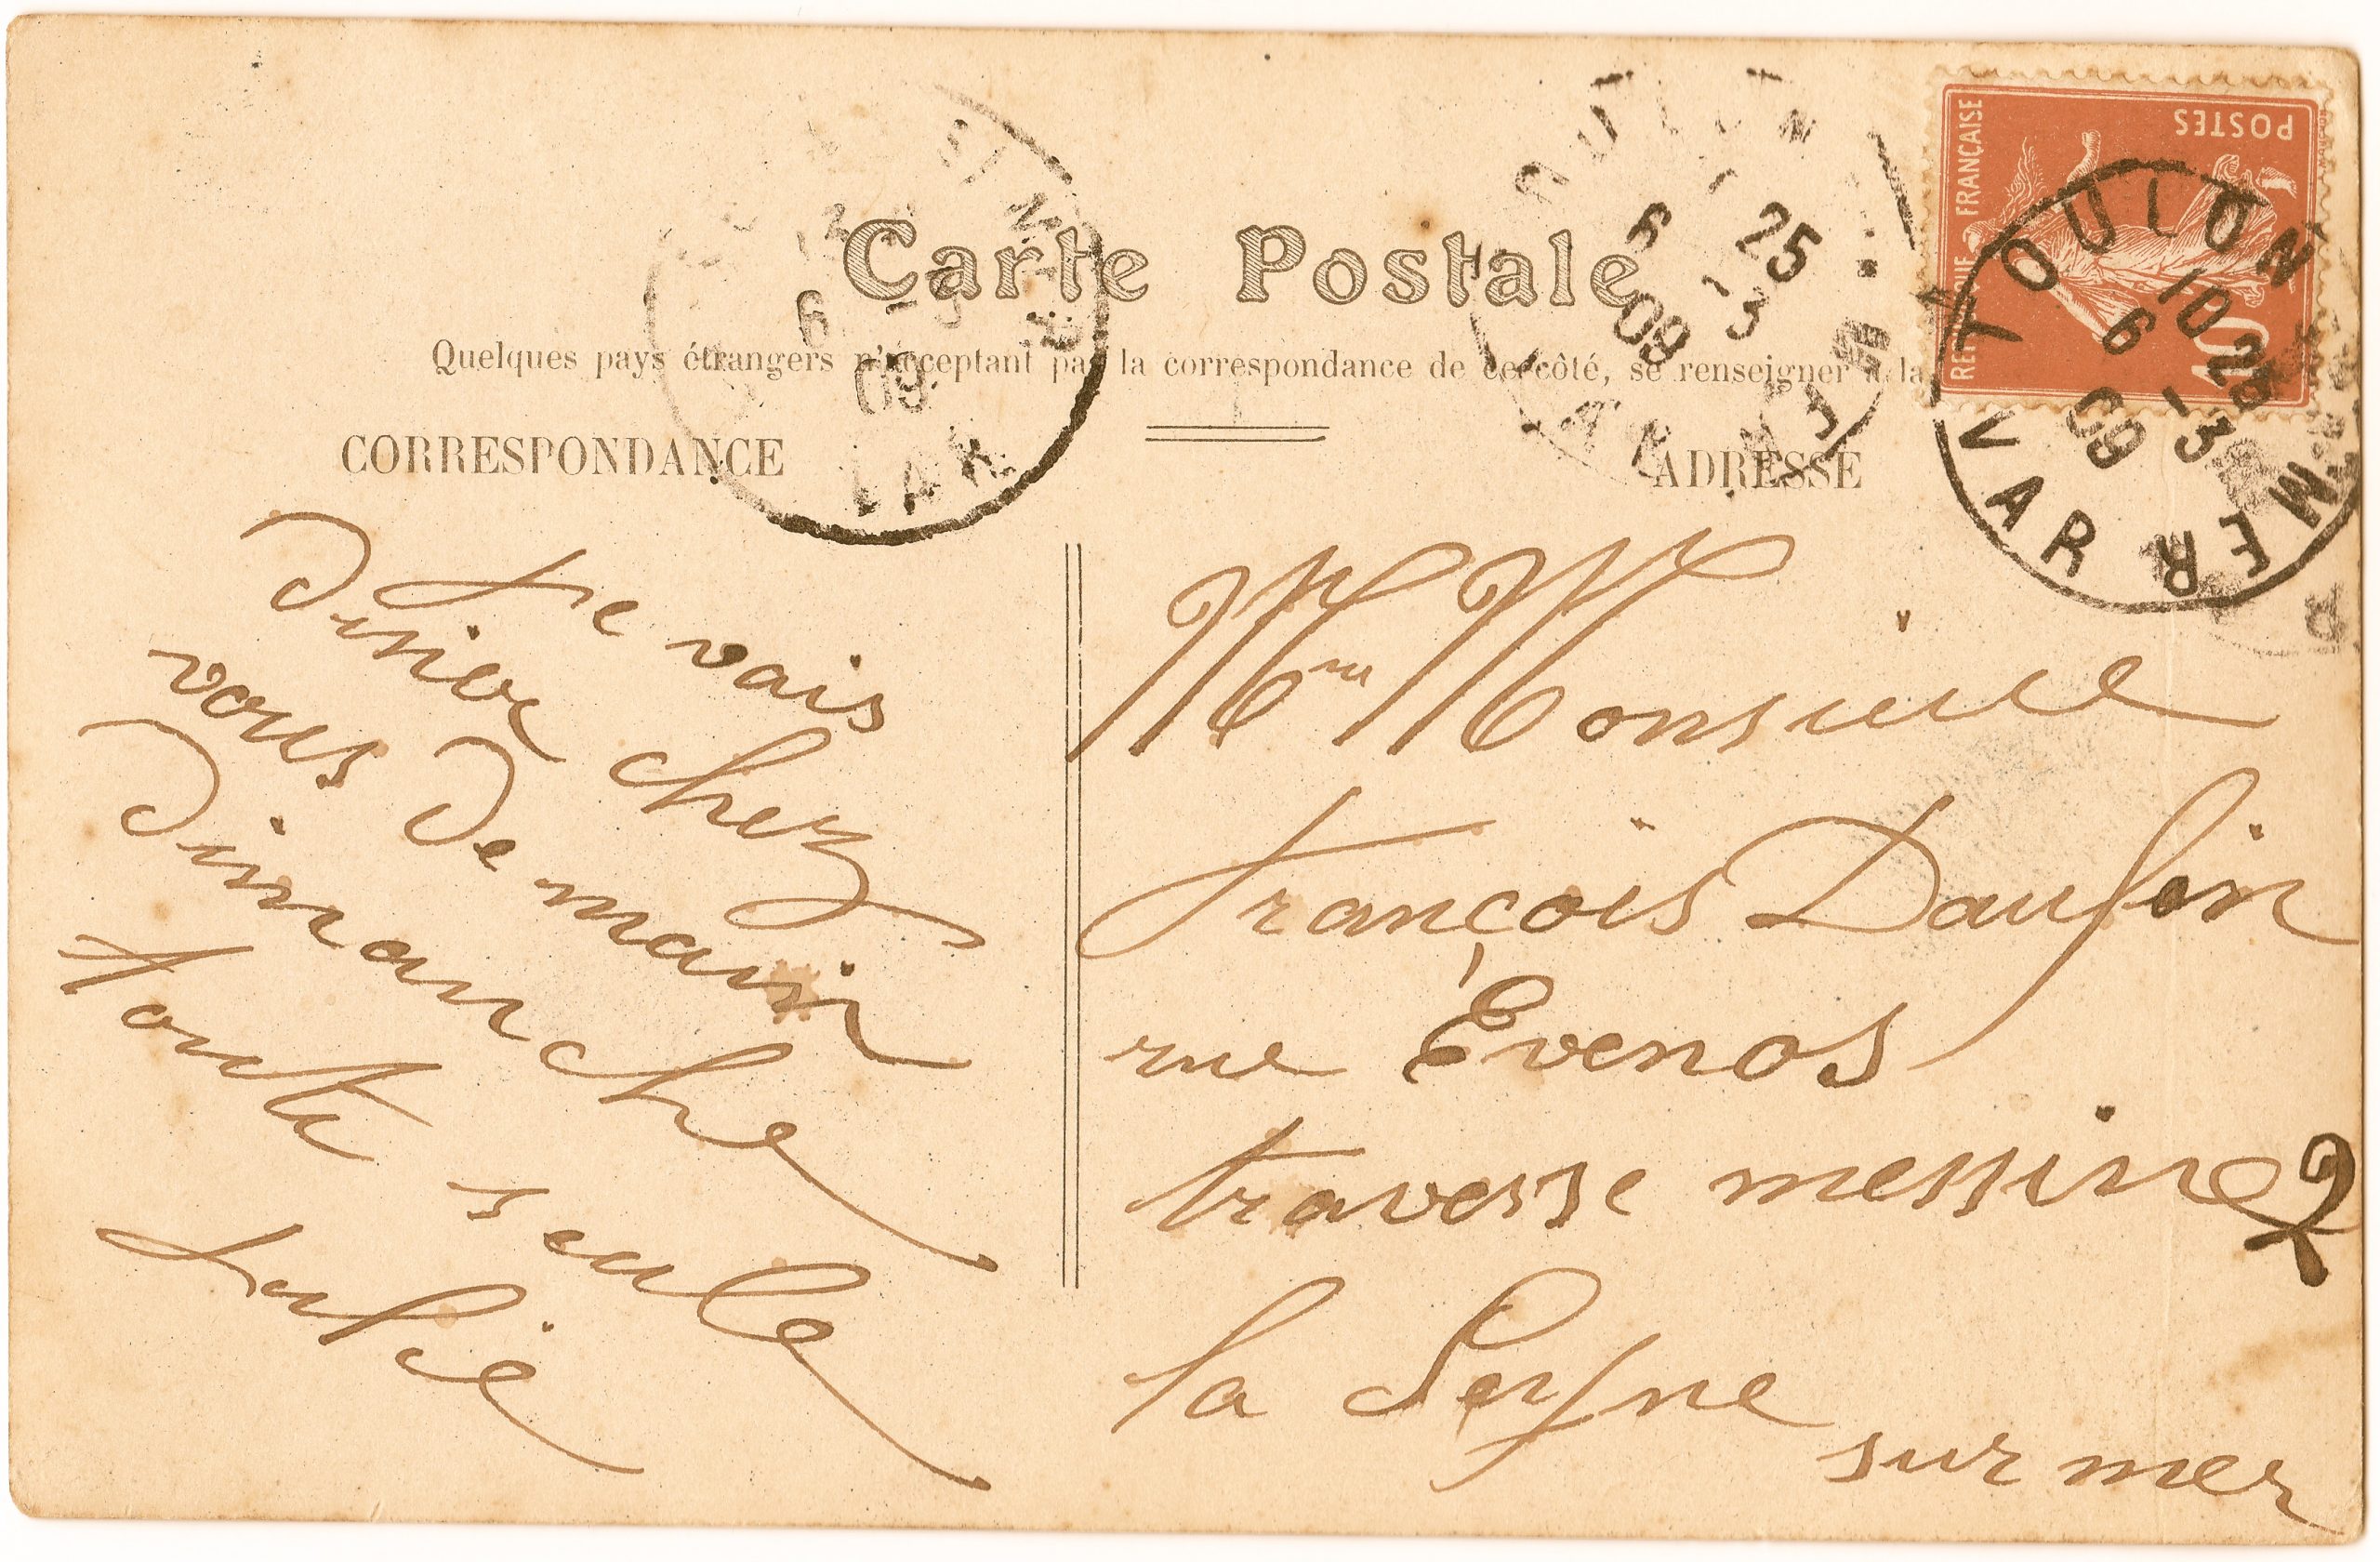 Carte Postale
Quelques pays étrangers n'acceptant pas la correspondance de ce côté, se renseigner à la
CORRESPONDANCE
ADRESSE
POSTES
REPUBLIQUE FRANÇAISE
10
TOULON
10 25
6 -3
09
VAR
MER
25
6 -3
09
6 -3
09
VAR
Je vais
diner chez
vous demain
dimanche
toute seule
Julie
Mme Monsieur
François Daufin
rue Évenos
travesse messine 2
la Seyne
sur mer